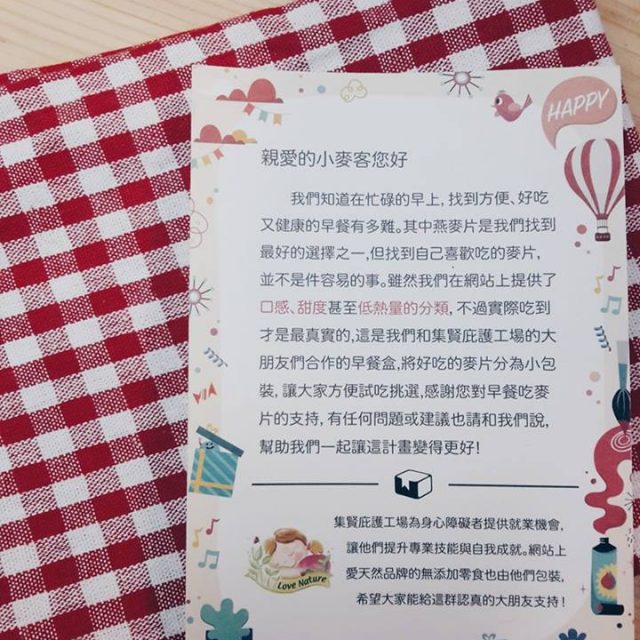 HAPPY
親愛的小麥客您好
我們知道在忙碌的早上,找到方便、好吃
又健康的早餐有多難。其中燕麥片是我們找到
最好的選擇之一,但找到自己喜歡吃的麥片,
並不是件容易的事。雖然我們在網站上提供了
口感、甜度甚至低熱量的分類,不過實際吃到
才是最真實的,這是我們和集賢庇護工場的大
朋友們合作的早餐盒,將好吃的麥片分為小包
裝,讓大家方便試吃挑選,感謝您對早餐吃麥
片的支持,有任何問題或建議也請和我們說,
幫助我們一起讓這計畫變得更好!
集賢庇護工場為身心障礙者提供就業機會,
讓他們提升專業技能與自我成就。網站上
愛天然品牌的無添加零食也由他們包裝,
希望大家能給這群認真的大朋友支持!
Love Nature